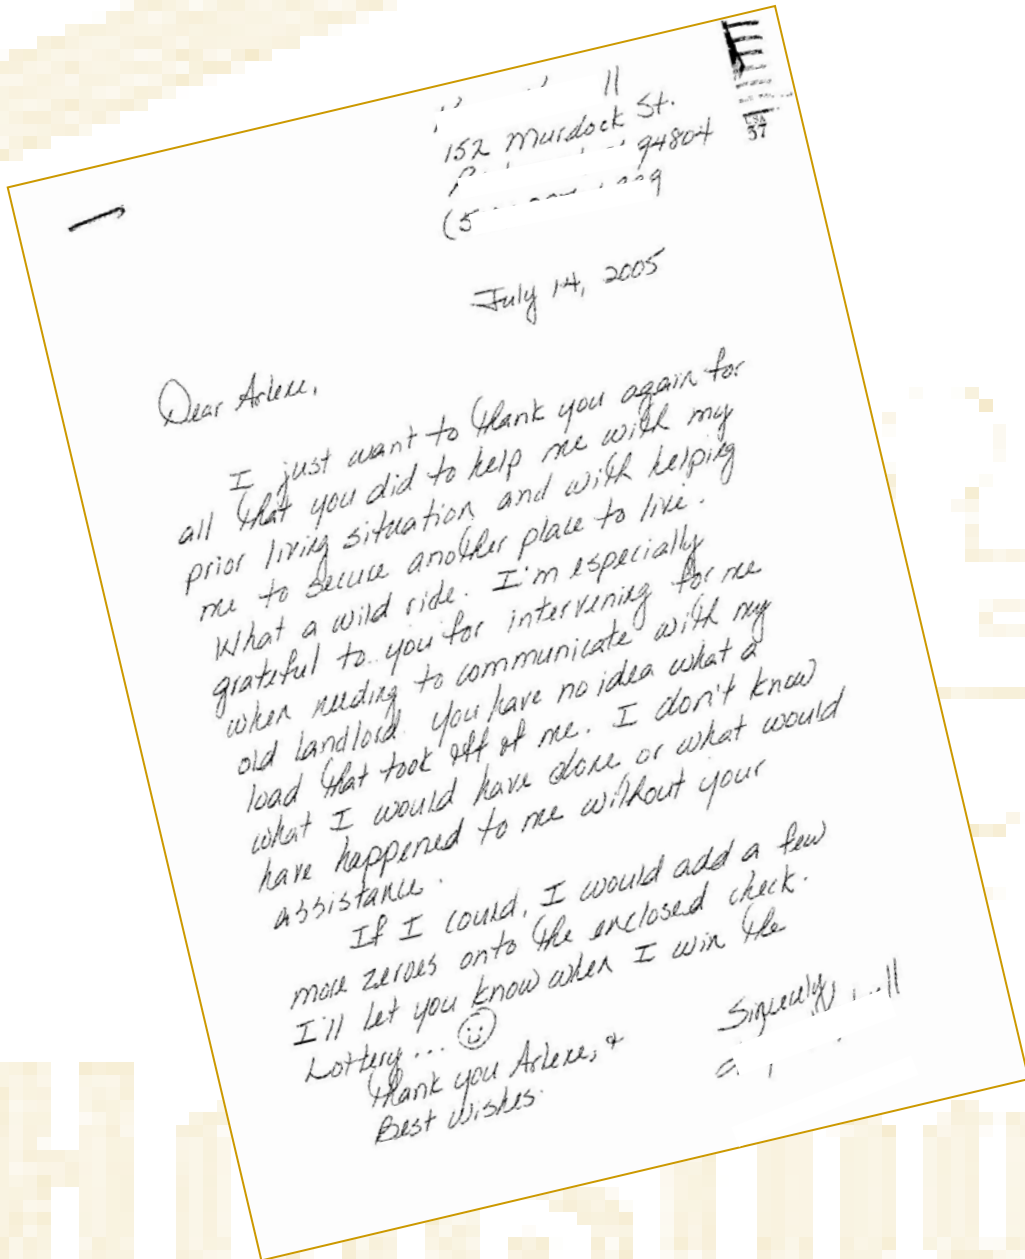 ll
152 Murdock St.
94804
(5 9
USA
37
July 14, 2005
Dear Arlene,
I just want to thank you again for
all that you did to help me with my
prior living situation and with helping
me to secure another place to live.
What a wild ride. I'm especially
grateful to you for intervening for me
when needing to communicate with my
old landlord. You have no idea what a
load that took off of me. I don't know
what I would have done or what would
have happened to me without your
assistance.
If I could, I would add a few
more zeroes onto the enclosed check.
I'll let you know when I win the
Lottery... ☺
Thank you Arlene, &
Best Wishes.
Sincerely,
ll